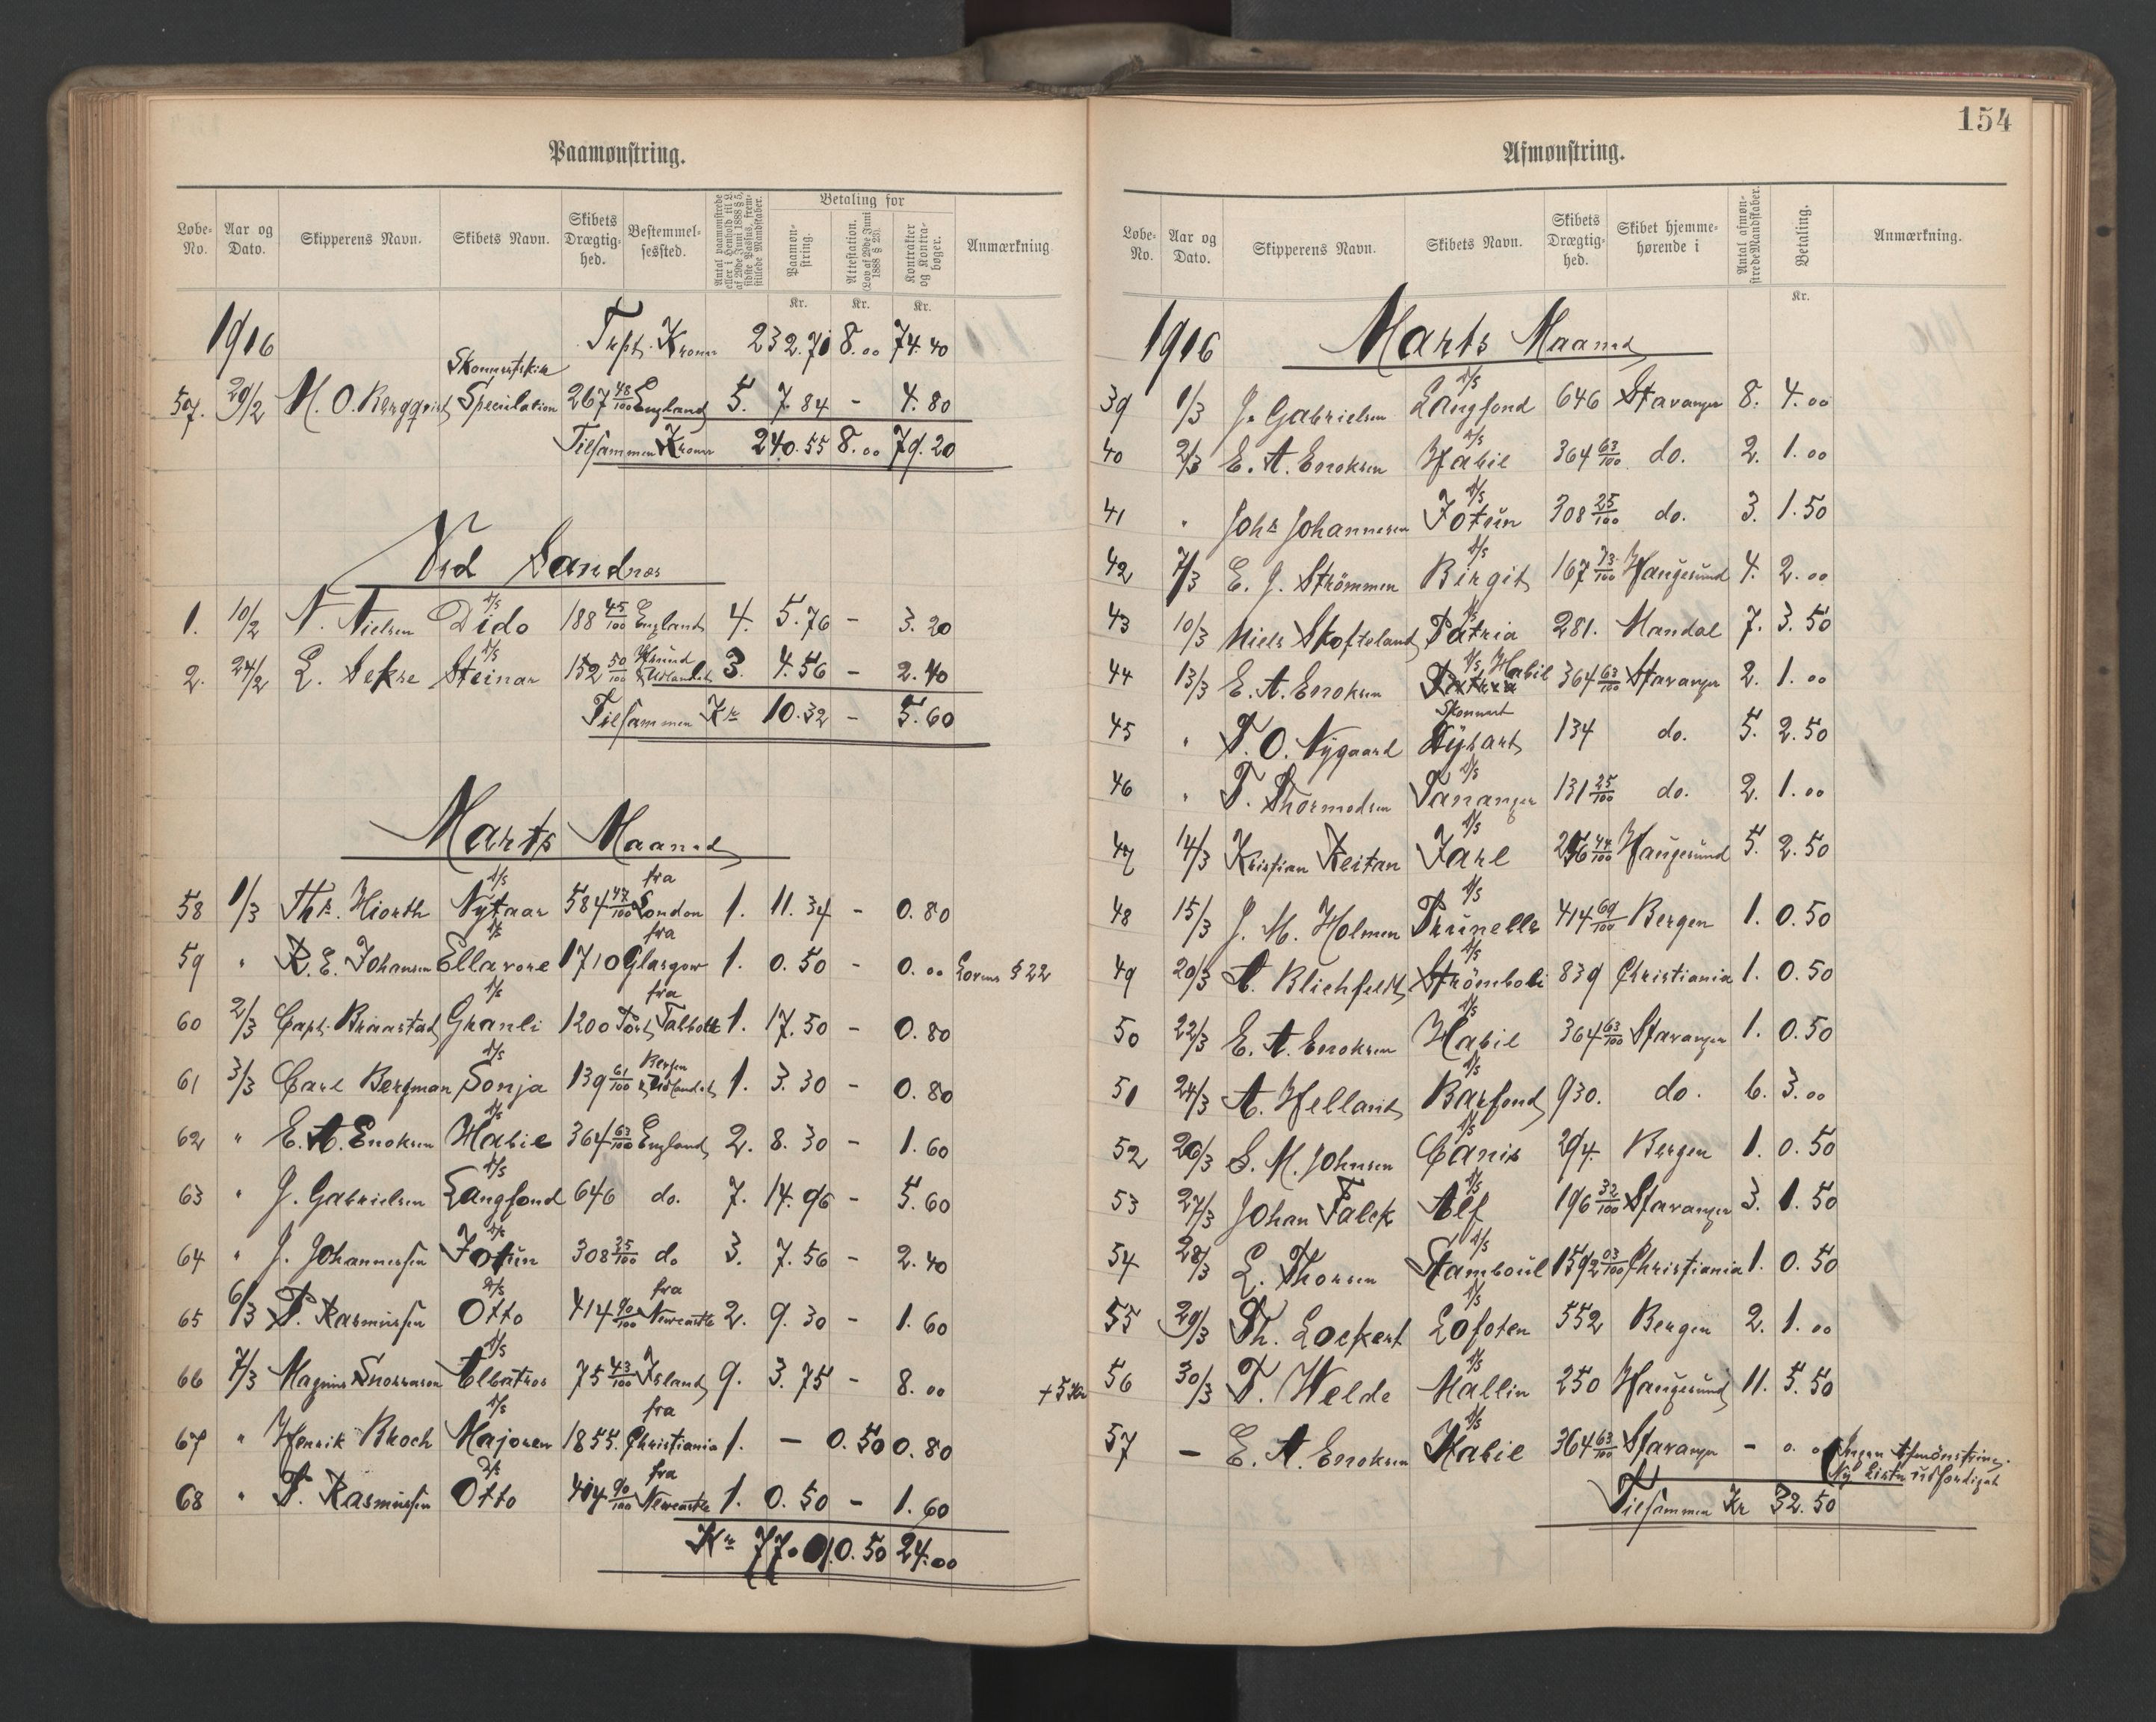 Paamønstring.
Løbe-No. Aar og Dato. Skipperens Navn. Skibets Navn. Skibets Drægtighed. Bestemmelsessted. Antal paamønstrede eller i Henhold til L. af 29de Juni 1888 § 5, sidste Passus, fremstillede Mandskaber. Betaling for Paamønstring. Attestation. (Lov af 29de Juni 1888 § 25). Kontrakter og Kontrabøger. Anmærkning
Kr. Kr. Kr.
1916 Trspt. Kroner 232.71 8.00 74.40
Skonnertskib
57. 29/2 M. O. Bergqvist Speculation 267 48/100 England 5. 7.84 - 4.80
Tilsammen Kroner 240.55 8.00 79.20
Ved Sandnæs
1. 10/2 N. Nielsen D/S Dido 188 45/100 England 4. 5.76 - 3.20
2. 24/2 L. Sekse D/S Steinar 152 50/100 & Udlandet 3. 4.56 - 2.40
Tilsammen Kr 10.32 - 5.60
Marts Maaned
58 1/3 Thr. Hiorth D/S Nytaar 584 47/100 fra London 1. 11.34 - 0.80
59 " R. E. Johansen D/S Ellavore 1710 fra Glasgow 1. 0.50 - 0.00 Lovens § 22
60 2/3 Capt. Braastad D/S Granli 1200 fra Port Talbot 1. 17.50 - 0.80
61 3/3 Carl Bergman D/S Sonja 139 61/100 Bergen & Udlandet 1. 3.30 - 0.80
62 " E. A. Enoksen D/S Habil 364 63/100 England 2. 8.30 - 1.60
63 " J. Gabrielsen D/S Langfond 646 do. 7. 14.96 - 5.60
64 " J. Johannessen D/S Jotun 308 25/100 do 3. 7.56 - 2.40
65 6/3 P. Rasmussen D/S Otto 414 90/100 fra Newcastle 2. 9.30 - 1.60
66 7/3 Magnus Snorrason D/S Albatros 75 43/100 Island 9. 3.75 - 8.00 + 5 Kr
67 " Henrik Broch D/S Majoren 1855. fra Christiania 1. - 0.50 0.80
68 " P. Rasmussen D/S Otto 414 90/100 fra Newcastle 1. 0.50 - 1.60
Kr 77.01 0.50 24.00
154
Afmønstring.
Løbe-No. Aar og Dato. Skipperens Navn. Skibets Navn. Skibets Drægtighed. Skibet hjemmehørende i Antal afmønstrede Mandskaber. Betaling. Anmærkning.
Kr.
1916 Marts Maaned
39 1/3 J. Gabrielsen D/S Langfond 646 Stavanger 8. 4.00
40 2/3 E. A. Enoksen D/S Habil 364 63/100 do. 2. 1.00
41 " Johs Johannesen D/S Jotun 308 25/100 do. 3. 1.50
42 7/3 E. J. Strömmen D/S Birgit 167 73/100 Haugesund 4. 2.00
43 10/3 Niels Skofteland D/S Patria 281. Mandal 7. 3.50
44 13/3 E. A. Enoksen D/S Habil 364 63/100 Stavanger 2. 1.00
45 " T. O. Nygaard Skonnert Dyhart 134 do. 5. 2.50
46 " T. Thormodsen D/S Tananger 131 25/100 do. 2. 1.00
47 14/3 Kristian Reitan D/S Jarl 256 44/100 Haugesund 5. 2.50
48 15/3 J. M. Holmen D/S Prunelle 414 69/100 Bergen 1. 0.50
49 20/3 A. Blichfeldt D/S Strömboli 839 Christiania 1. 0.50
50 22/3 E. A. Enoksen D/S Habil 364 63/100 Stavanger 1. 0.50
51 24/3 A. Helland D/S Barfond 930. do. 6. 3.00
52 26/3 S. M. Johnsen D/S Canis 294. Bergen 1. 0.50
53 27/3 Johan Falck D/S Alf 196 32/100 Stavanger 3. 1.50
54 28/3 L. Thorsen D/S Stamboul 1592 03/100 Christiania 1. 0.50
55 29/3 Th. Lockert D/S Lofoten 552 Bergen 2. 1.00
56 30/3 T. Welde D/S Mallin 250 Haugesund 11. 5.50
57 - E. A. Enoksen D/S Habil 364 63/100 Stavanger - 0.00 Ingen Afmönstring. Ny Liste udfærdiget
Tilsammen Kr 32.50